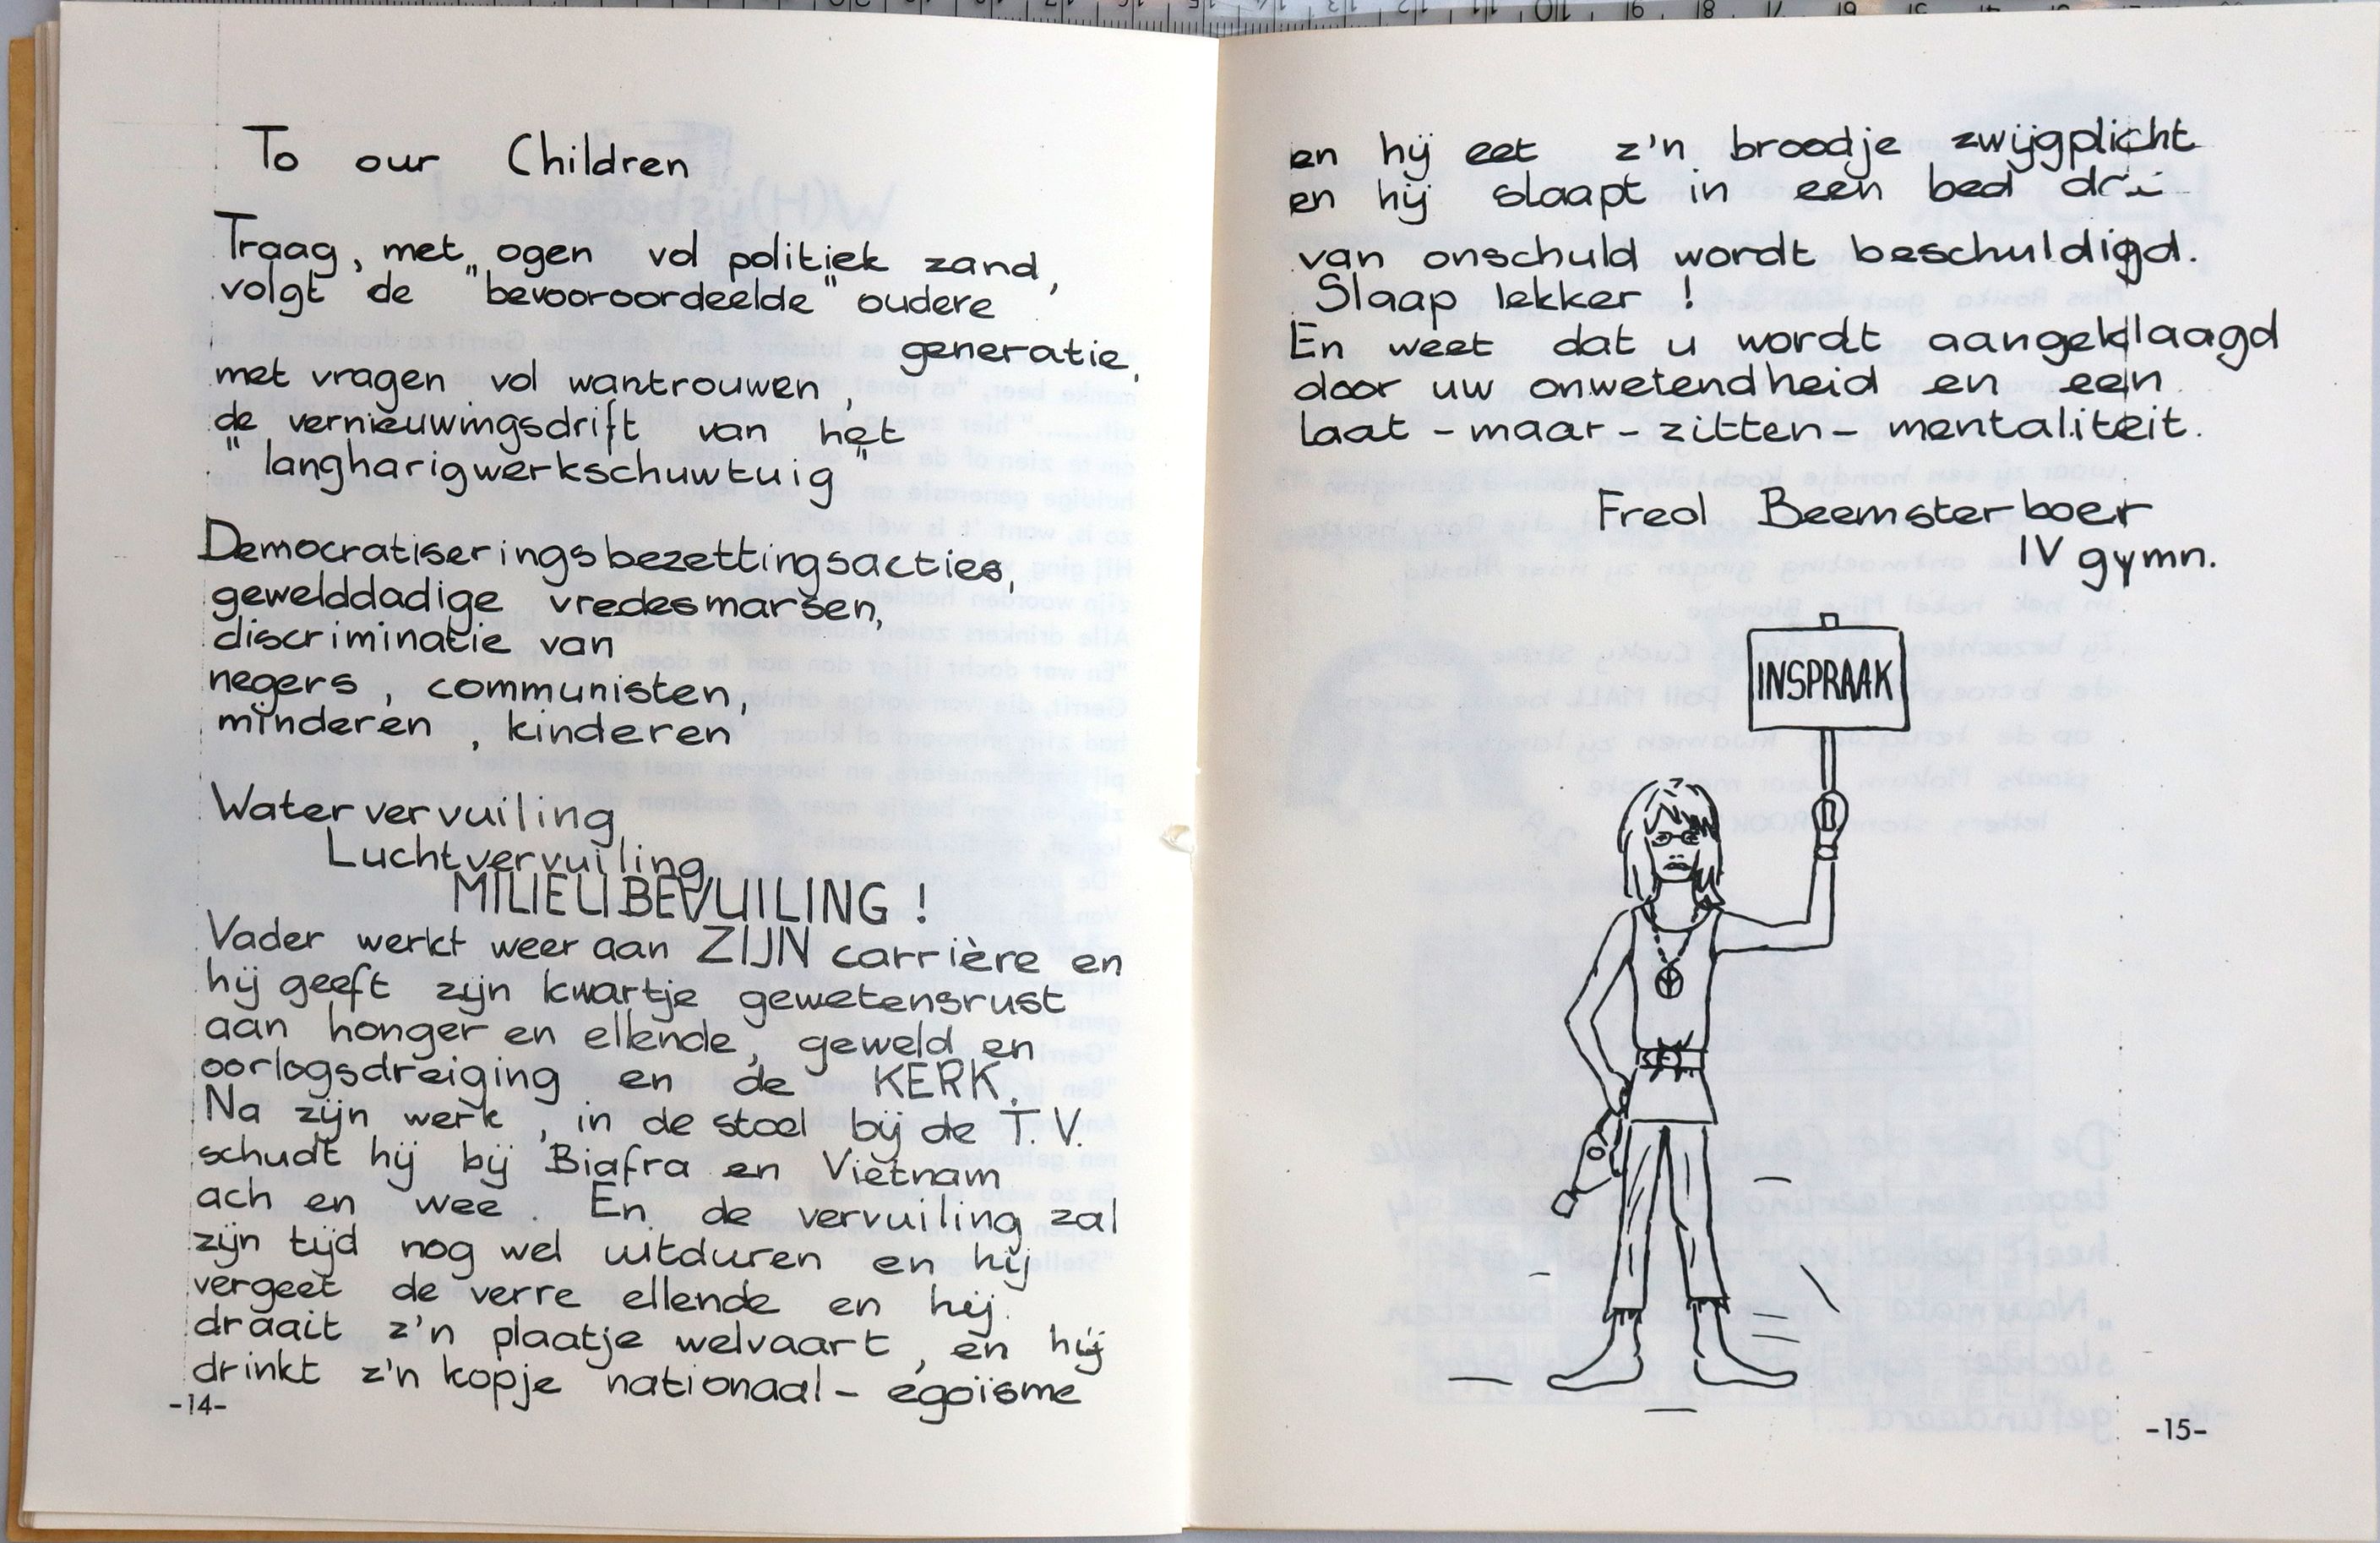 To our Children
Traag, met ogen vol politiek zand,
volgt de "bevooroordeelde" oudere
generatie,
met vragen vol wantrouwen,
de vernieuwingsdrift van het
"langharigwerkschuwtuig"
Democratiseringsbezettingsacties,
gewelddadige vredesmarsen,
discriminatie van
negers, communisten,
minderen, kinderen
Watervervuiling
Luchtvervuiling,
MILIEUBEVUILING!
Vader werkt weer aan ZIJN carrière en
hij geeft zijn kwartje gewetensrust
aan honger en ellende, geweld en
oorlogsdreiging en de KERK.
Na zijn werk, in de stoel bij de T.V.
schudt hij bij Biafra en Viëtnam
ach en wee. En de vervuiling zal
zijn tijd nog wel uitduren en hij
vergeet de verre ellende en hij
draait z'n plaatje welvaart, en hij
drinkt z'n kopje nationaal-egoïsme
-14-
en hij eet z'n broodje zwijgplicht
en hij slaapt in een bed
van onschuld wordt beschuldigd.
Slaap lekker!
En weet dat u wordt aangeklaagd
door uw onwetendheid en een
laat-maar-zitten-mentaliteit.
Fred Beemsterboer
IV gymn.
INSPRAAK
-15-